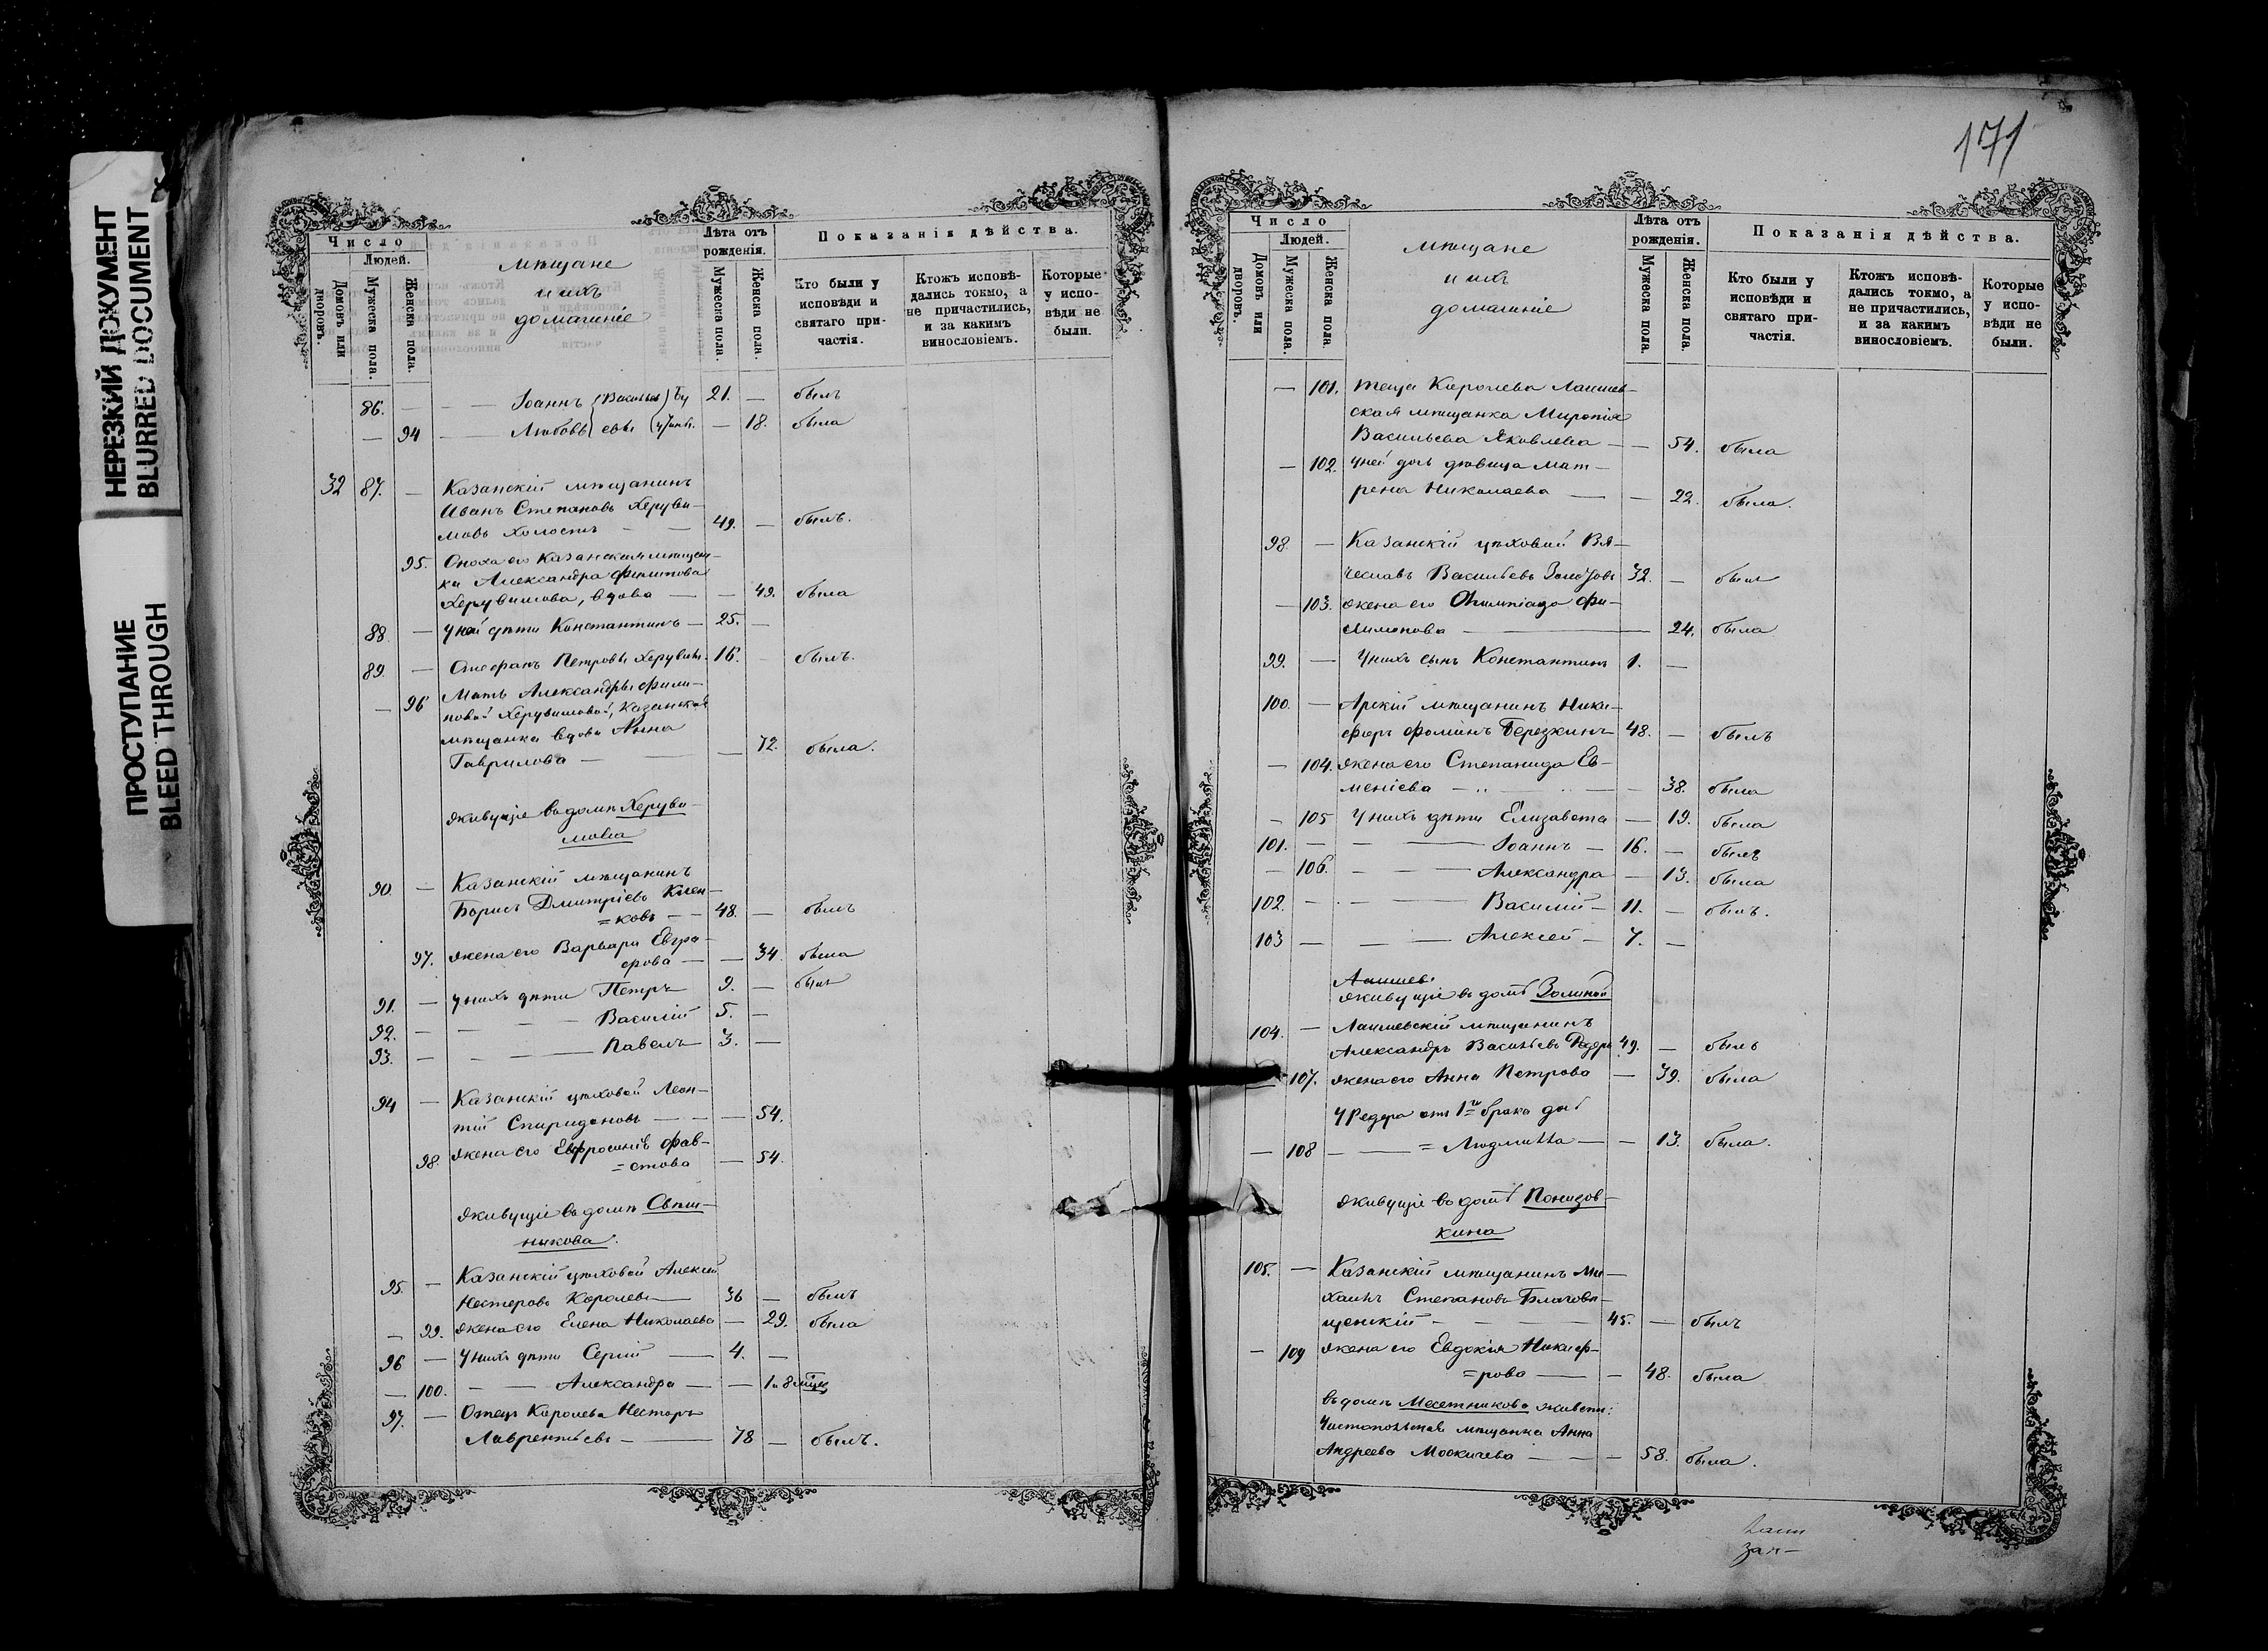 НЕРЕЗКИЙ ДОКУМЕНТ
BLURRED DOCUMENT
ПРОСТУПАНИЕ
BLEED THROUGH
Число
Людей.
Домовъ или дворовъ.
Мужеска пола.
Женска пола.
мѣщане
и ихъ
домашніе
Лѣта отъ рожденія.
Мужеска пола.
Женска пола.
Показанія дѣйства.
Кто были у исповѣди и святаго причастія.
Ктожъ исповѣдались токмо, а не причастились, и за какимъ винословіемъ.
Которые у исповѣди не были.
86. — — Іоаннъ 21. — былъ
— 94 — Любовь — 18. была
32 87. — Казанскій мѣщанинъ
Иванъ Степановъ Херуви-
мовъ холостъ — — 49. — былъ.
95. Сноха его Казанская мѣщан-
ка Александра Филипова
Херувимова, вдова — — 49. была
88 — У ней дѣти Константинъ — 25. —
89. — Стефанъ Петровы Херувим. 16. — былъ.
— 96 Мать Александры Фили-
повой Херувимовой, Казанская
мѣщанка вдова Анна
Гаврилова — — 72. была.
Живущіе въ домѣ Херуви-
мова
90 — Казанскій мѣщанинъ
Борисъ Дмитріевъ Клен-
=ковъ — — 48. — былъ
97. Жена его Варвара Евгра-
фова — — 34. была
91. — У нихъ дѣти Петръ 9. — былъ
92. — — — Василій 5. —
93. — — — Павелъ — 3. —
94 — Казанскій цѣховой Леон-
тій Спиридоновъ — — — 54.
98. Жена его Евфросинія Фав-
=стова — 54.
Живущіе въ домѣ Свѣш-
никова.
95. — Казанскій цѣховой Алексѣй
Нестеровъ Королевъ — 36 — былъ
— 99. Жена его Елена Николаева — 29. была
96 — У нихъ дѣти Сергій — 4. —
— 100. — — Александра — — 1 и 8 мѣся
97. — Отецъ Королева Несторъ
Лаврентьевъ — — 78 — былъ.
171
Число
Людей.
Домовъ или дворовъ.
Мужеска пола.
Женска пола.
мѣщане
и ихъ
домашніе
Лѣта отъ рожденія.
Мужеска пола.
Женска пола.
Показанія дѣйства.
Кто были у исповѣди и святаго причастія.
Ктожъ исповѣдались токмо, а не причастились, и за какимъ винословіемъ.
Которые у исповѣди не были.
— 101. Теща Королева Лаишев-
ская мѣщанка Миропія
Васильева Яковлева — — 54. была
— 102. У ней дочь дѣвица Мат-
рена Николаева — — 22. была.
98. — Казанскій цѣховой Вя-
чеславъ Васильевъ 32. — былъ
— 103. Жена его Олимпіада Фи-
лимонова — 24. была
99. — У нихъ сынъ Константинъ 1. —
100. — Арскій мѣщанинъ Ники-
форъ Фоминъ Березкинъ 48. — былъ
— 104. Жена его Степанида Ев-
меніева — — — 38. была
— 105 У нихъ дѣти Елизавета — 19. была
101. — — — Іоаннъ — 16. — былъ
— 106. — — Александра — 13. была
102. — — — Василій — 11. — былъ.
103 — — — Алексей — 7. —
Лаишев
Живущіе въ домѣ Золиной
104. — Лаишевскій мѣщанинъ
Александръ Васильевъ Редеръ 49. — былъ
107. Жена его Анна Петрова — 39. была
У Редера отъ 1го брака дочь
— 108 — — = Людмила — — 13. была.
Живущіе въ домѣ Понизов-
кина
105. — Казанскій мѣщанинъ Ми-
хаилъ Степановъ Благовѣ-
щенскій — — — 45. — былъ
— 109 Жена его Евдокія Никиф-
=рова — — 48. была
Въ домѣ Месетникова живетъ:
Чистопольская мѣщанка Анна
Андреева — — — 58. была.